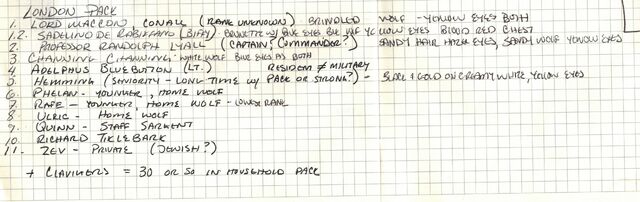 LONDON PACK
1. LORD MACCON, CONALL (RANK UNKNOWN) BRINDLED WOLF - YELLOW EYES BOTH
1.2. SADELINO DE RABIFFANO (BIFFY) BRUNETTE W/ BLUE EYES BLK WLF YELLOW EYES BLOOD RED CHEST
2. PROFESSOR RANDOLPH LYALL (CAPTAIN, COMMANDER?) SANDY HAIR HAZEL EYES, SANDY WOLF YELLOW EYES
3. CHANNING CHANNING - WHITE WOLF BLUE EYES AS BOTH
4. ADELPHUS BLUEBUTTON (LT.) RESIDENT ≠ MILITARY
5. HEMMING (SENIORITY - LONG TIME W/ PACK OR STRONG?) - BLACK & GOLD ON CREAMY WHITE, YELLOW EYES
6. PHELAN - YOUNGER, HOME WOLF
7. RAFE - YOUNGER, HOME WOLF - LOWER RANK
8. ULRIC - HOME WOLF
9. QUINN - STAFF SARGENT
10. RICHARD TICKLEBARK
11. ZEV - PRIVATE (JEWISH?)
+ CLAVIGERS = 30 OR SO IN HOUSEHOLD PACK